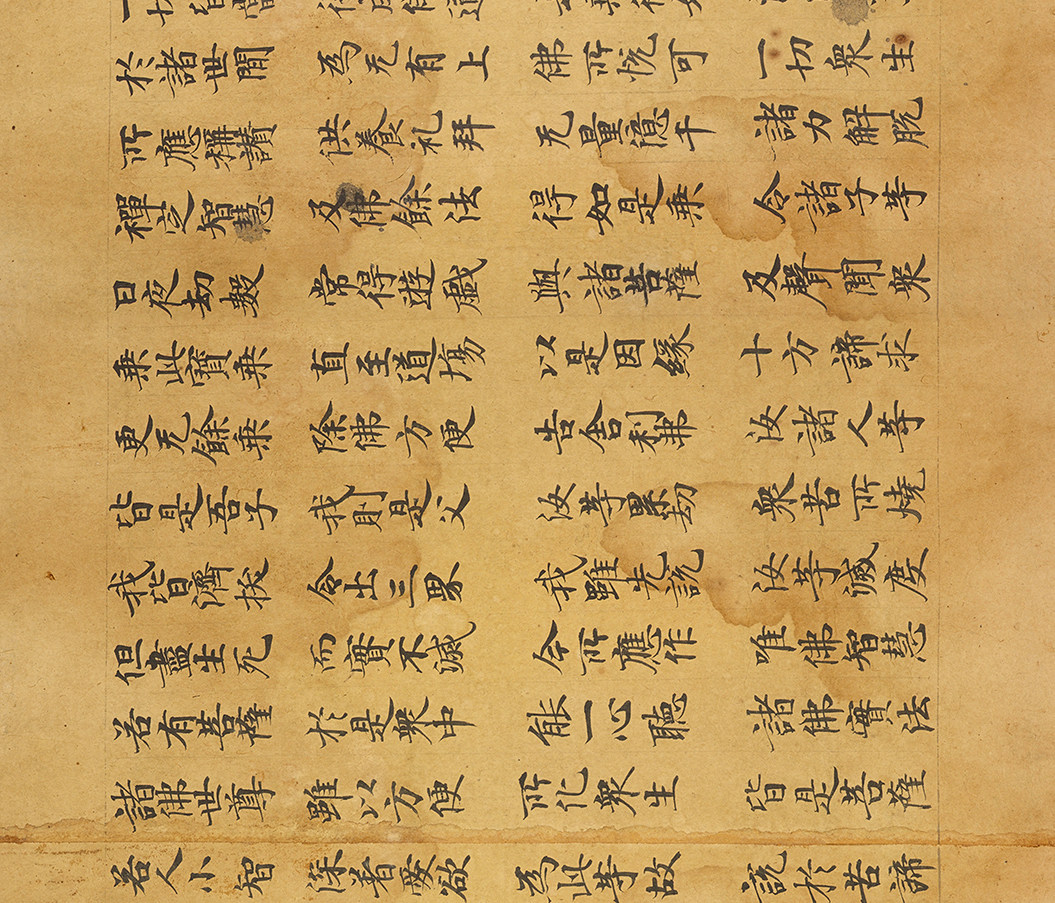 於諸世間 為无有上 佛所悅可 一切眾生
所應稱讚 供養礼拜 无量億千 諸力解脫
禪定智慧 及佛餘法 得如是乘 令諸子等
日夜劫數 常得遊戲 與諸菩薩 及聲聞眾
乘此寶乘 直至道場 以是因緣 十方諦求
更无餘乘 除佛方便 告舍利弗 汝諸人等
皆是吾子 我則是父 汝等累劫 眾苦所燒
我皆濟拔 令出三界 我雖先說 汝等滅度
但盡生死 而實不滅 今所應作 唯佛智慧
若有菩薩 於是眾中 能一心聽 諸佛實法
諸佛世尊 雖以方便 所化眾生 皆是菩薩
若人小智 深著愛欲 為此等故 說於苦諦